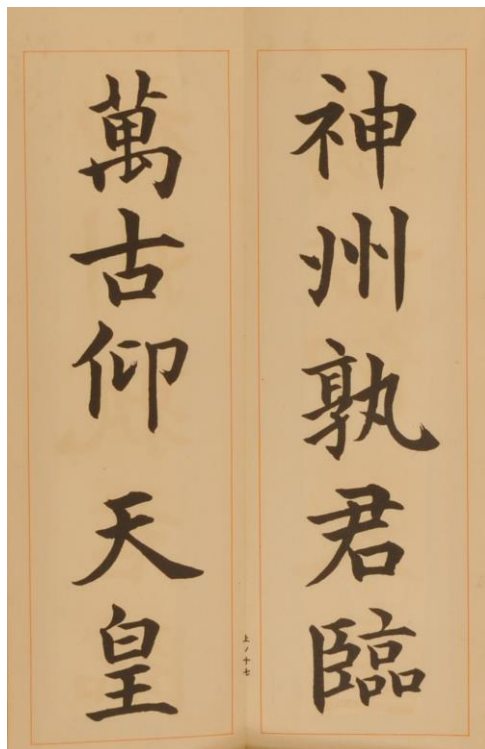 神州孰君臨
萬古仰天皇
上ノ十七